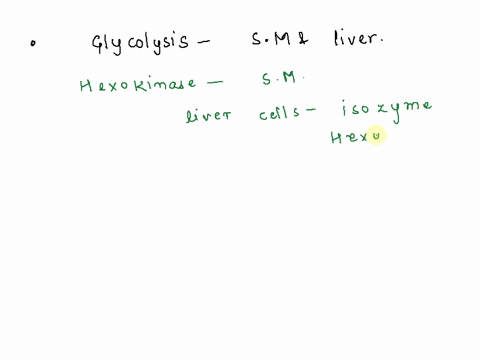 • Glycolysis - S.M & liver.
Hexokinase - S.M.
liver cells - isozyme
Hexo